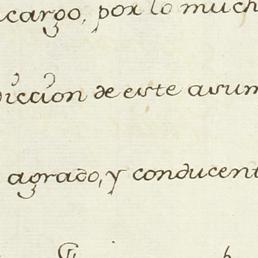 cargo, por lo much
diccion de este asum
agrado, y conducent